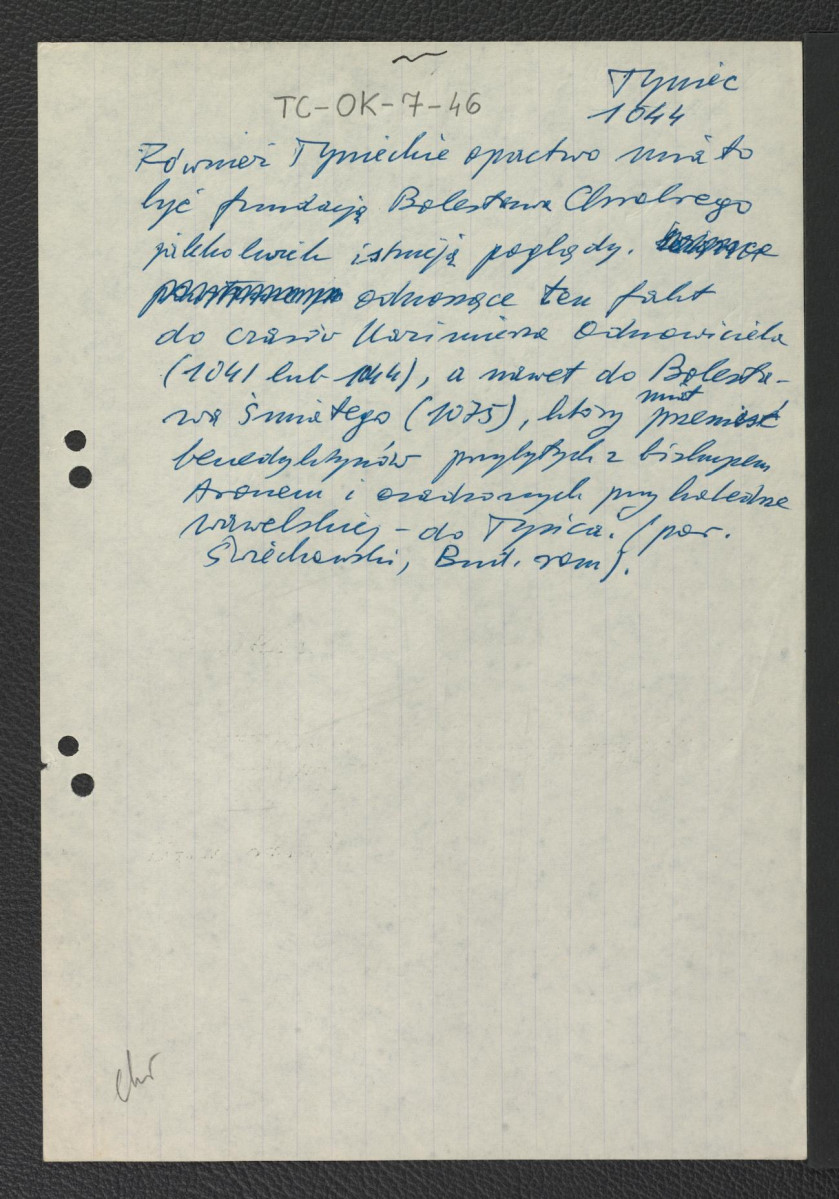 TC-OK-7-46
Tyniec
1044
Również Tynieckie opactwo miało
być fundacją Bolesława Chrobrego
jakkolwiek istnieją poglądy.
odnoszące ten fakt
do czasów Kazimierza Odnowiciela
(1041 lub 1044), a nawet do Bolesła-
wa Śmiałego (1075), który miał przenieść
benedyktynów przybyłych z biskupem
Aronem i osadzonych przy katedrze
wawelskiej - do Tyńca. (por.
Świechowski, Bud. rom).
chr